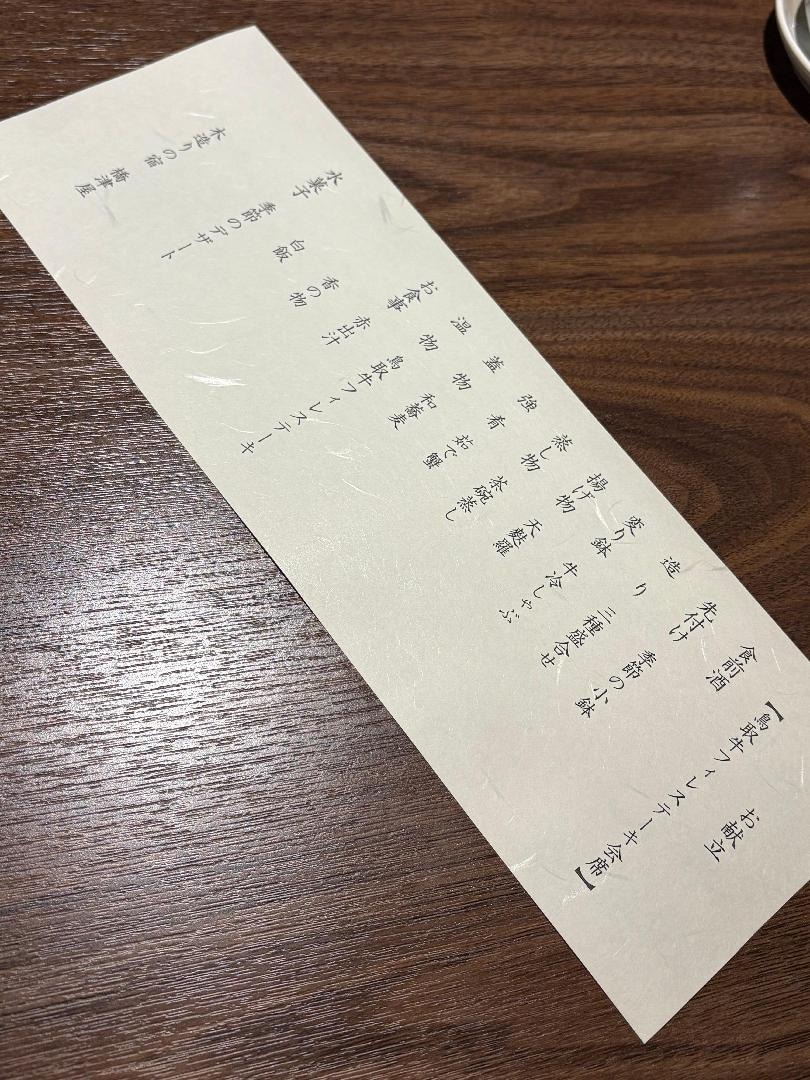 お献立
【鳥取牛フィレステーキ会席】
食前酒
先付け 季節の小鉢
造り 三種盛合せ
変り鉢 牛冷しゃぶ
揚げ物 天麩羅
蒸し物 茶碗蒸し
強肴 茹で蟹
蓋物 和蕎麦
温物 鳥取牛フィレステーキ
お食事 赤出汁
香の物
白飯
水菓子 季節のデザート
木造りの宿 橋津屋